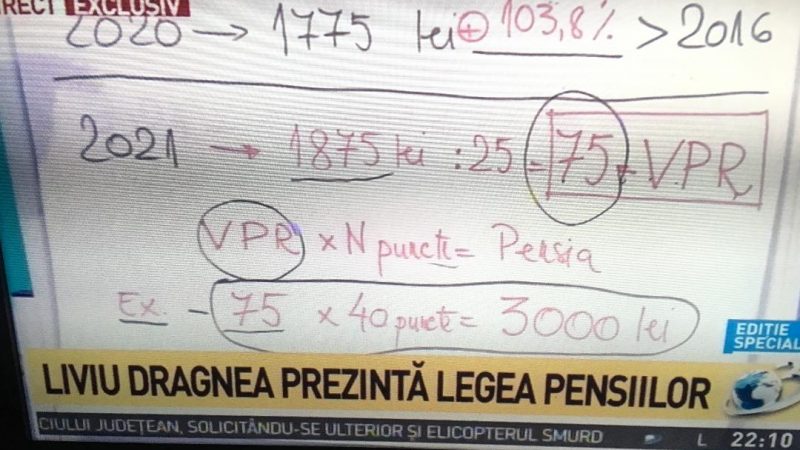 RECT EXCLUSIV
2020 → 1775 lei ⊕ 103,8% > 2016
2021 → 1875 lei : 25 = 75 → VPR
VPR × N puncte = Pensia
Ex. – 75 × 40 puncte = 3000 lei
EDITIE
SPECIAL
LIVIU DRAGNEA PREZINTĂ LEGEA PENSIILOR
CIULUI JUDEȚEAN, SOLICITÂNDU-SE ULTERIOR ȘI ELICOPTERUL SMURD
L 22:10